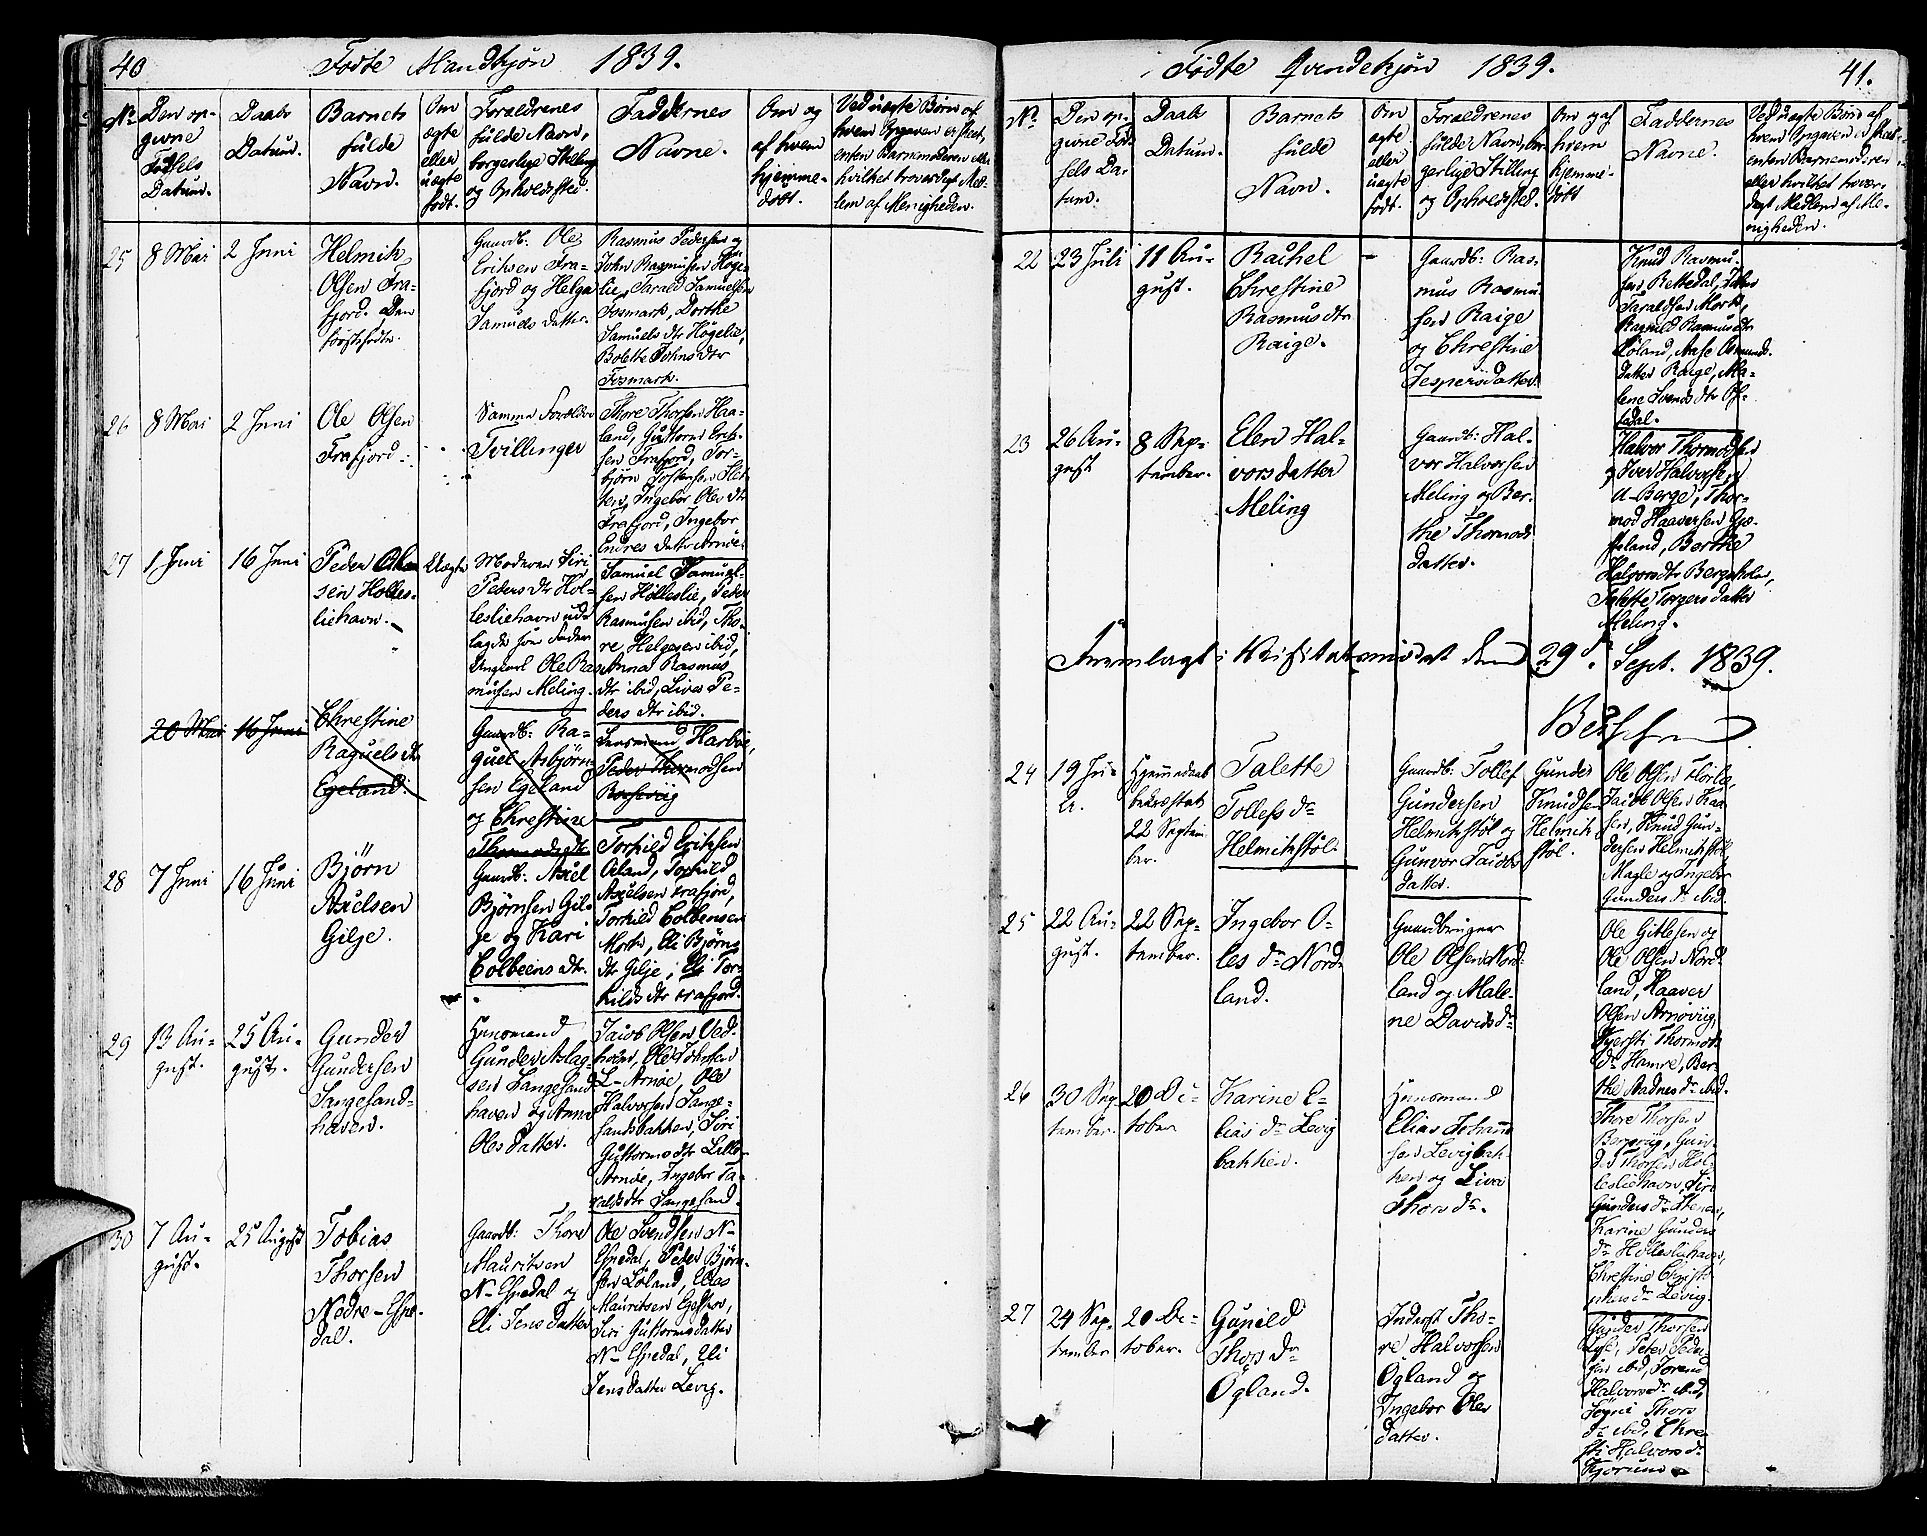 40
Fødte Mandkjøn 1839.
No
Den op-
givne
Fødsels
Datum.
Daabs
Datum.
Barnets
fulde
Navn.
Om
ægte
eller
uægte
født.
Forældrenes
fulde Navn,
borgerlige Stilling
og Opholdsted.
Faddernes
Navne.
Om og
af hvem
hjemme-
døbt.
Ved uægte Børn af
hvem Opgaven er skeet,
enten Barnemoderen eller
hvilket troværdigt Med-
lem af Menigheden.
25
8 Mai
2 Juni
Helmik
Olsen Fra-
fjord. Den
førstfødte.
Gaardb: Ole
Eriksen Fra-
fjord og Helga
Samuels datter.
Rasmus Pedersen og
John Rasmusen Høge-
lie, Tarald Samuelsen
Fosmark, Dorthe
Samuels dtr Høgelie,
Bolette Johns dtr
Fosmark.
26
8 Mai
2 Juni
Ole Olsen
Frafjord.
Samme Forældre
Tvillinger
Thore Thorsen Haa-
land, Guttorm Erik-
sen Frafjord, Tor-
bjørn Tostensen Flek-
ken, Ingebor Oles dtr
Frafjord, Ingebor
Endres datter Arnøe.
27
1 Juni
16 Juni
Peder Olen
sen Holles-
liehavn.
Uægte
Moderen Siri
Peders dtr Hol-
lesliehavn ud-
lagde som Fader
Ungkarl Ole Ras-
musen Meling.
Samuel Samuel-
sen Holleslie, Peder
Rasmusen ibid, Tho-
re Helgesen ibid,
Anna Rasmus
dtr ibid, Liva Pe-
ders dtr ibid.
20 Mai
16 Juni
Chrestine
Raguels dtr
Egeland.
Gaardb: Ra-
guel Asbjørn-
sen Egeland
og Chrestine
Thormods dtr
Lensmand Harboe,
Peder Thormodsen
28
7 Juni
16 Juni
Bjørn
Axelsen
Gilje.
Gaardb: Axel
Bjørnsen Gil-
je og Kari
Colbeens dtr.
Torkild Eriksen
Oeland, Torkild
Axelsen Frafjord,
Torkild Colbensen
Mork, Eli Bjørns
dtr Gilje, Eli Tor-
kilds dtr Frafjord.
29
13 Au-
gust.
25 Au-
gust.
Gunder
Gundersen
Langesand-
haven.
Huusmand
Gunder Aslag-
sen Langesand-
haven og Anna
Oles datter.
Jacob Olsen Ved-
L-Arnøe, Ole
Halvorsen Lange-
sandsbakken, Siri
Guttorms dtr Lille
Arnøe, Ingebor Ta-
ralds dtr Langesand.
30
7 Au-
gust.
25 August
Tobias
Thorsen
Nedre-Espe-
dal.
Gaardb: Thore
Mauritsen
N-Espedal og
Eli Jens datter
Ole Svendsen N-
Espedal, Peder Bjørn-
sen Løland, Elias
Mauritsen Egeskov,
Siri Guttorms datter
N-Espedal, Eli
Jens datter Levig.
Fødte Qvindekjøn 1839.
41.
No
Den op-
givne Fød-
sels Da-
tum.
Daab
Datum.
Barnets
fulde
Navn.
Om
ægte
eller
uægte
født.
Forældrenes
fulde Navn, bor-
gerlige Stilling
og Opholdsted.
Om og af
hvem
hjemme-
døbt
Faddernes
Navne.
Ved uægte Børn af
hvem Opgaven er skeet
enten Barnemoderen
eller hvilket trovær-
digt Medlem af Me-
nigheden.
22
23 Juli
11 Au-
gust.
Rachel
Chrestine
Rasmus dtr
Raige.
Gaardb: Ras-
mus Rasmu-
sen Raige
og Chrestine
Jespers datter.
Knud Rasmu-
sen Rettedal,
Taraldsen Mork,
Ragnild Rasmus dtr
Løland, Aase Osmunds-
datter Raige, Ma-
lene Svends dtr Es-
pedal.
23
26 Au-
gust
8 Sep-
tember.
Elen Hal-
vors datter
Meling
Gaardb: Hal-
vor Halvorsen
Meling og Ber-
the Thormods
datter.
Halvor Thormodsen
og Iver Halvorsen
Berge, Thor-
mod Haaversen Gjø-
seland, Berthe
Halvors dtr Bergeholen,
Talette Torgers datter
Meling.
Fremlagt i Visitatsmødet den 29de Sept. 1839.
24
19 Ju-
li.
Hjemmedaab
bekræftet
22 Septem-
ber.
Talette
Tollefs dr
Helmikstøl.
Gaardb: Tollef
Gundersen
Helmikstøl og
Gunvor Jacobs
datter.
Gunder
Knudsen
Helmik-
støl.
Ole Olsen Florlie,
Jacob Olsen Kaa-
sen, Knud Gun-
dersen Helmikstøl,
Magle og Ingebor
Gunders dr ibid.
25
22 Au-
gust.
22 Sep-
tember.
Ingebor O-
les dr Nord-
land.
Gaardbruger
Ole Olsen Nord-
land og Male-
ne Davids dr
Ole Gitlesen og
Ole Olsen Nord-
land, Haaver
Olsen Arnøvig,
Kjersti Thormods
dr Hamre, Ber-
the Aadnes dr ibid.
26
30 Sep-
tember.
20 Oc-
tober
Karine E-
lias dr Levig
bakken.
Huusmand
Elias Johann-
sen Levigbak-
ken og Liva
Thors dr.
Thore Thorsen
Bergevig, Gun-
der Thorsen Hol-
lesliehavn, Siri
Gunders dr Stenen,
Karine Gunders
dr Hollesliehavn,
Chrestine Christi-
27
24 Sep-
tember
20 Oc-
tober.
Gunild
Thors dr
Øgland.
Inderst Tho-
re Halvorsen
Øgland og
Ingebor Oles
datter.
Gunder Thorsen
Lyse, Peter Peder-
sen ibid, Torend
Halvors dr ibid,
Søgni Thors
dr ibid, Chre-
sti Halvors dr
Kjørum.